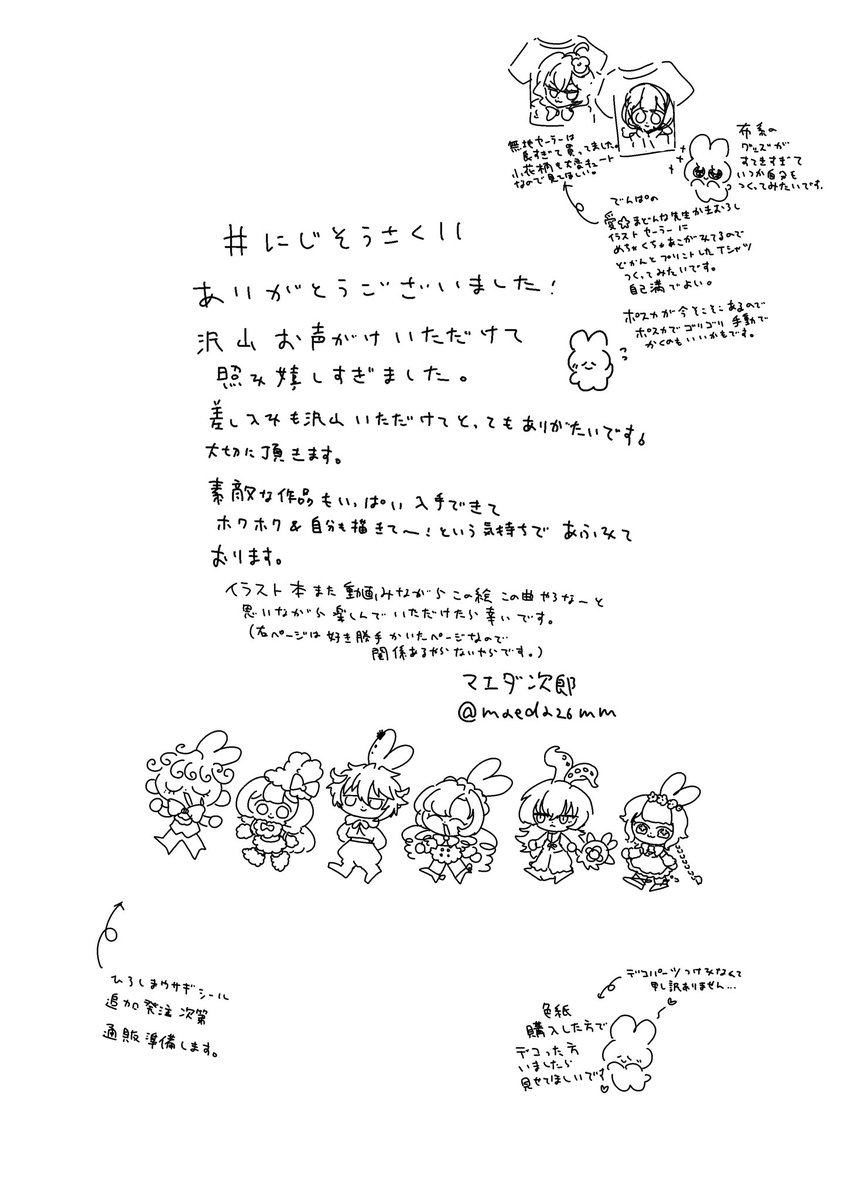 #にじそうさく11
ありがとうございました!
沢山お声がけいただけて
照れ嬉しすぎました。
差し入れも沢山いただけてとってもありがたいです。
大切に頂きます。
素敵な作品もいっぱい入手できて
ホクホク&自分も描きて〜!という気持ちであふれて
おります。
イラスト本また動画みながらこの絵この曲やろなーと
思いながら楽しんでいただけたら幸いです。
(右ページは好き勝手かいたページなので
関係あるやらないやらです。)
マエダ次郎
@maeda26mm
無地セーラーは
良すぎて買ってました。
小花柄も大変キュート
なので見てほしい。
布系の
グッズが
すてきすぎて
いつか自分も
つくってみたいです。
でんぱの
愛☆まどんな先生かきおろし
イラストセーラーに
めちゃくちゃあこがれてるので
どかんとプリントしたTシャツ
つくってみたいです。
自己満でよい。
ポスカが今そこそこあるので
ポスカでゴリゴリ手動で
かくのもいいかもです。
ひろしまウサギシール
追加発注次第
通販準備します。
デコパーツつけれなくて
申し訳ありません...
色紙
購入した方で
デコった方
いましたら
見せてほしいです